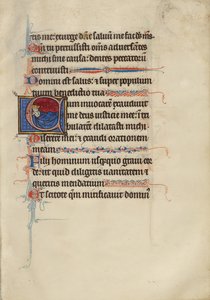 tris me: exurge dñe saluũ me fac dñs
Qm̃ tu percussisti om̃s aduersãtes
michi sine causa: dentes peccatorũ
contriuisti
Domini est salus: et super populum
tuum benedictio tua
Cum inuocarem exaudiuit
me deus iusticie mee: in tri
bulatiõe dilatasti michi
Miserere mei: et exaudi orationem
meam
Filii hominum usquequo graui cor
de: ut quid diligitis uanitatem et
queritis mendatium
Et scitote qm̃ mirificauit dominus